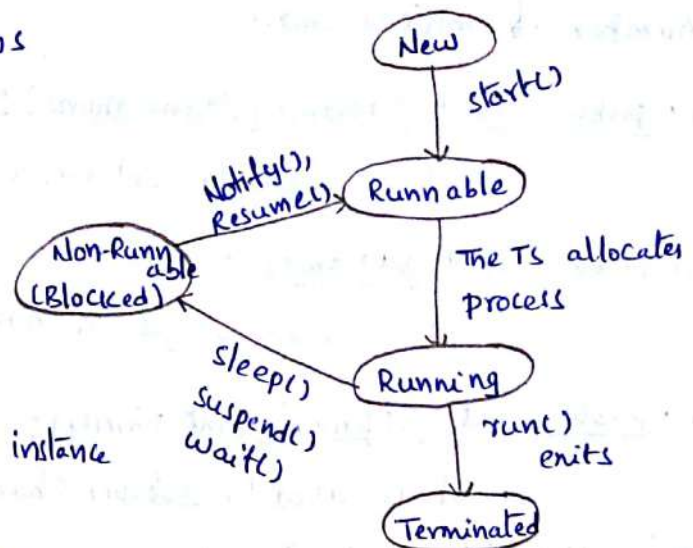 New
start()
Runnable
Notify(),
Resume()
Non-Runn
able
(Blocked)
The TS allocates
process
Running
sleep()
suspend()
wait()
instance
run()
exits
Terminated